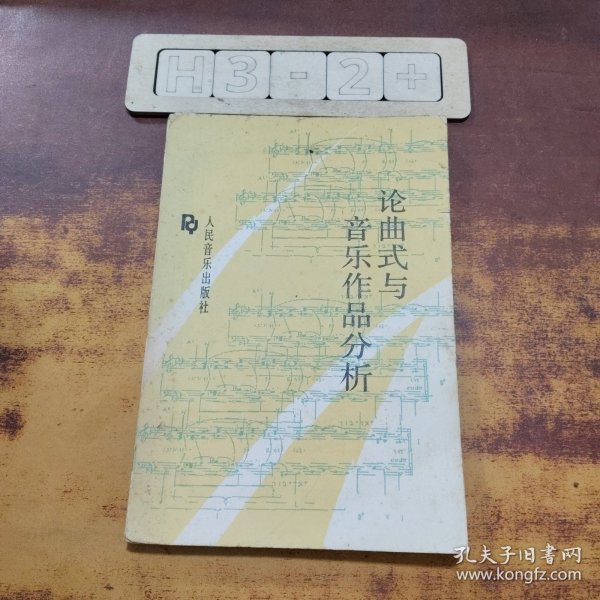 H3-2+
论曲式与
音乐作品分析
人民音乐出版社
孔夫子旧书网
www.kongfz.com